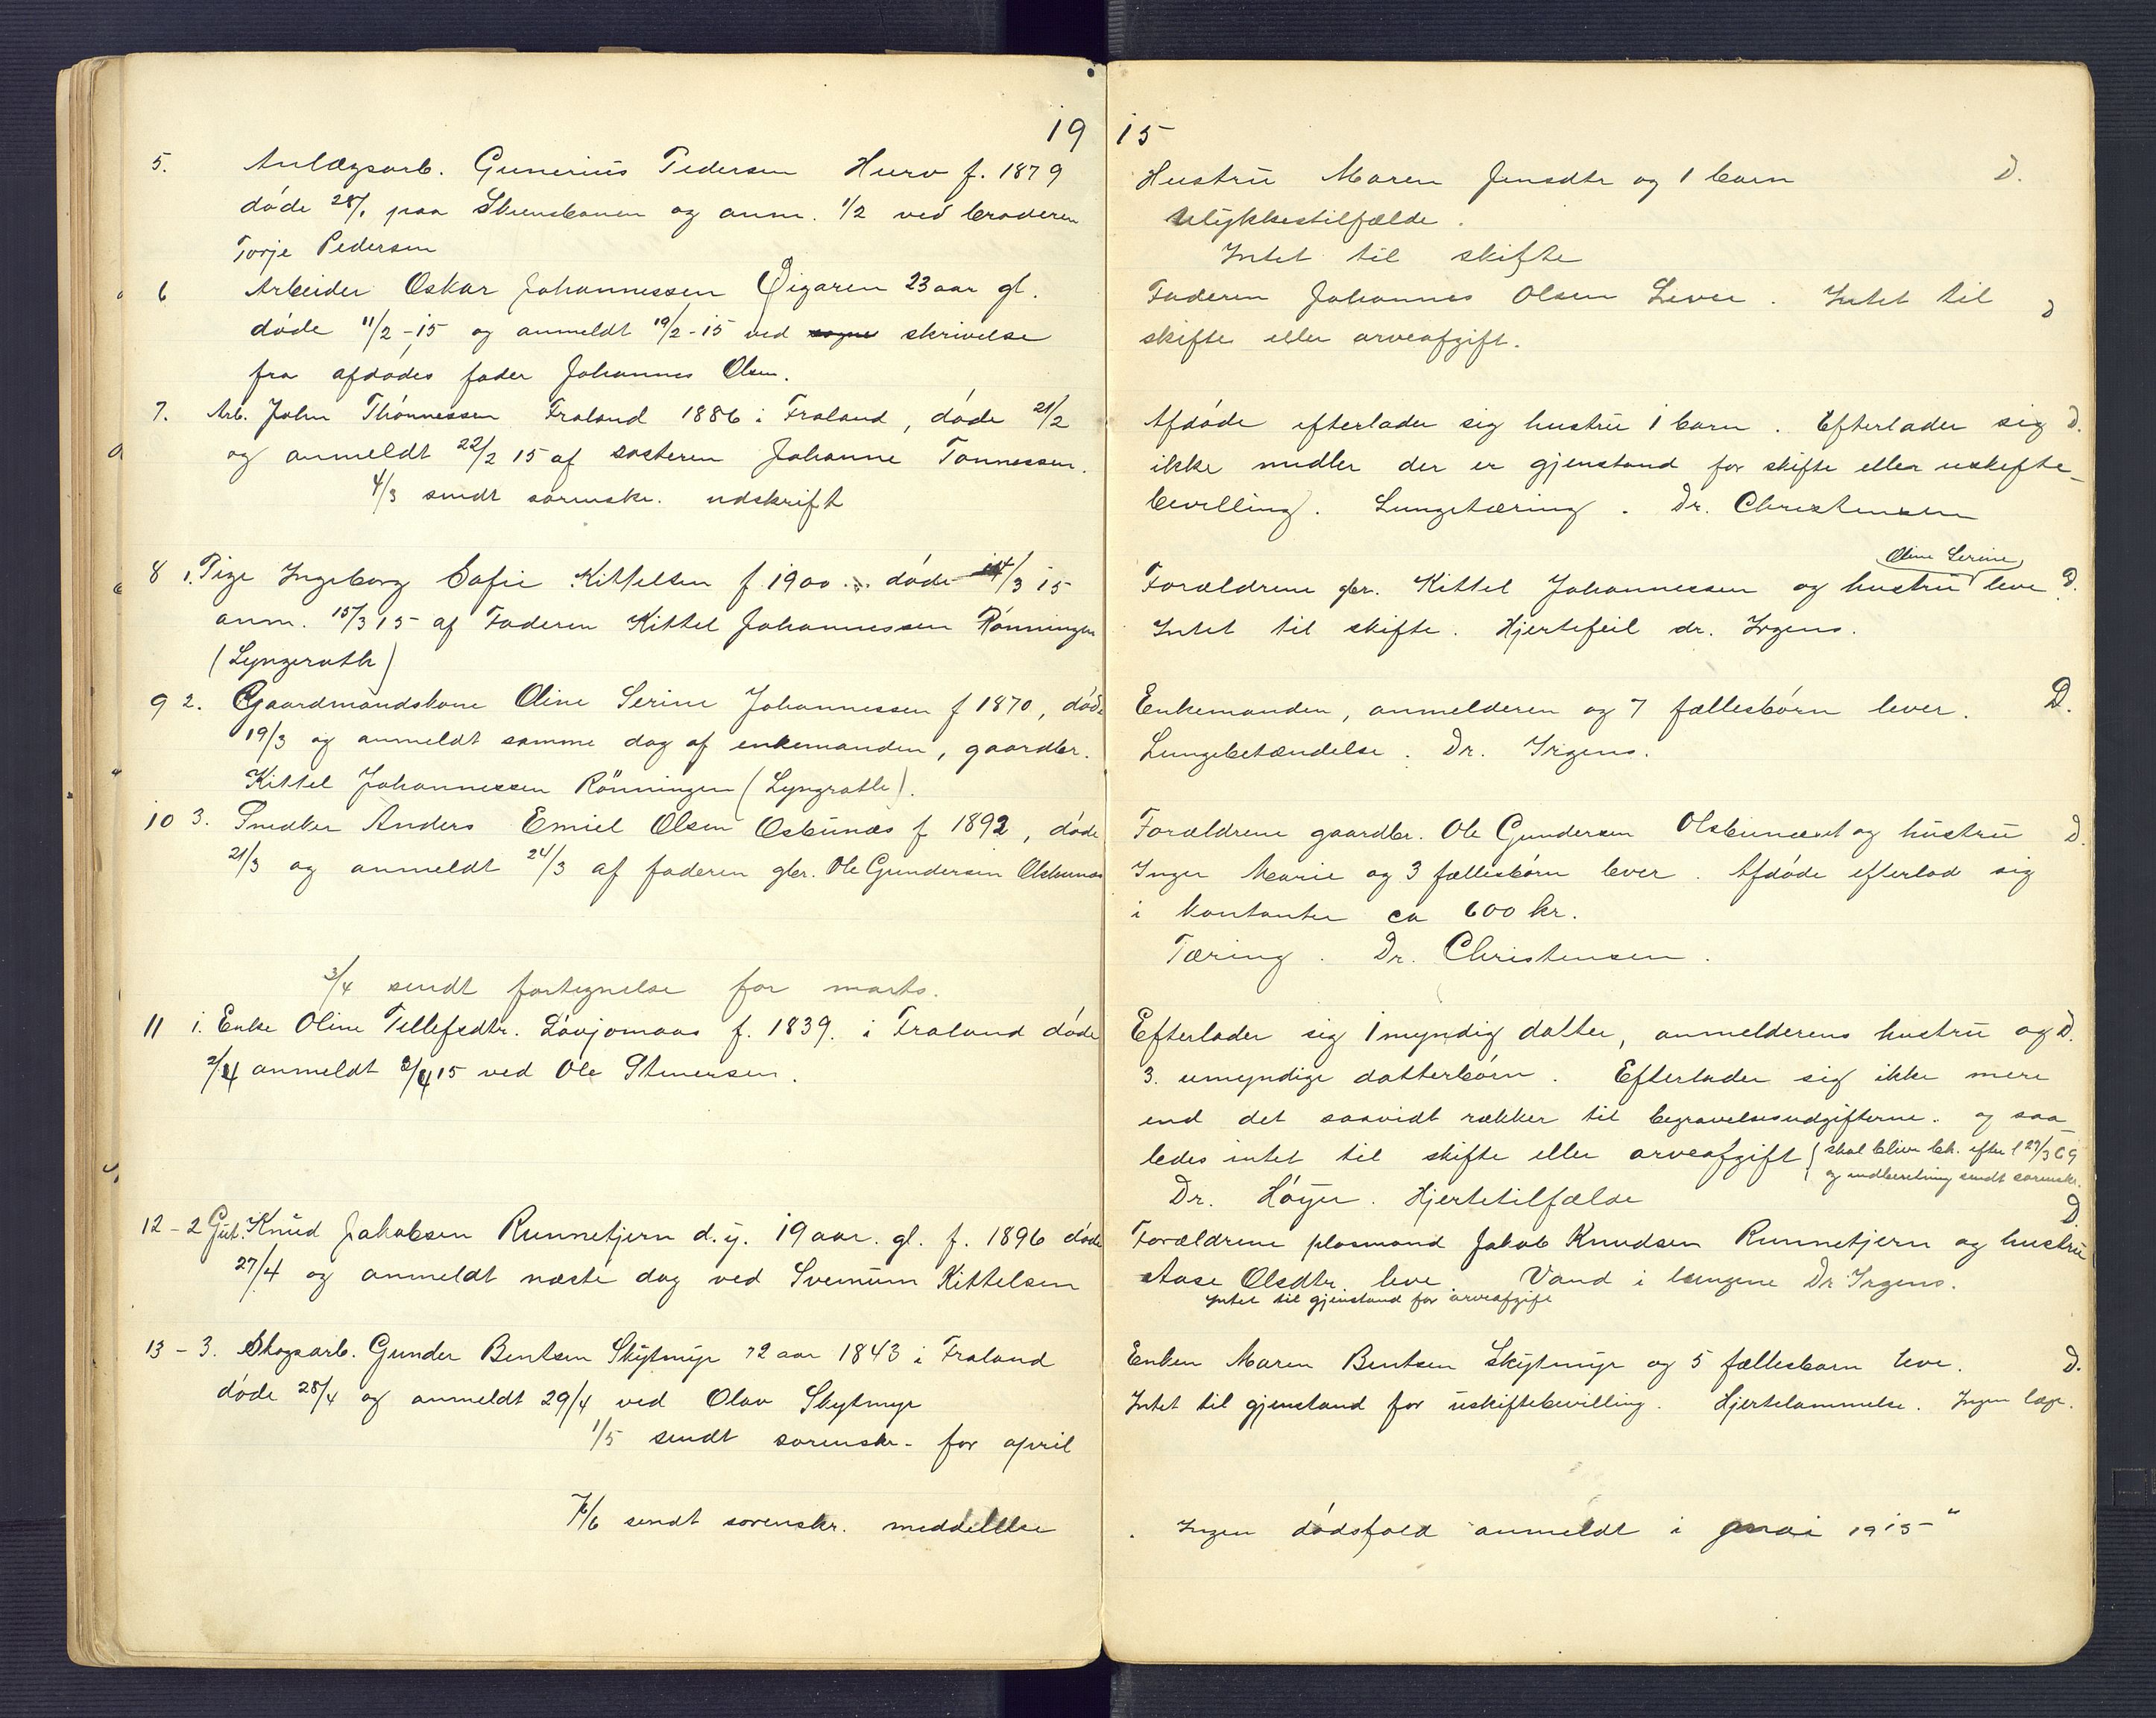 19
5. Anlægsarb. Gunerius Pedersen Hurv f. 1879
døde 28/1 paa Stensbanen og anm. 1/2 ved broderen
Torje Pedersen
6 Arbeider Oskar Johannessen Øigaren 23 aar gl.
døde 11/2-15 og anmeldt 19/2-15 ved skrivelse
fra afdødes fader Johannes Olsen.
7. Arb. John Thønnessen Froland 1886 i Froland, døde 21/2
og anmeldt 22/2 15 af søsteren Johanne Tønnessen.
4/3 sendt sorenskr. udskrift
8 1. Pige Ingeborg Sofie Kittelsen f. 1900 døde 14/3 15
anm. 15/3 15 af Faderen Kittel Johannessen Rønningen
(Lyngrotte)
9 2. Gaardmandskone Oline Serine Johannessen f 1870, døde
19/3 og anmeldt samme dag af enkemanden, gaardbr.
Kittel Johannessen Rönningen (Lyngrotte).
10 3. Snedker Anders Emiel Olsen Osbunæs f 1892, døde
21/3 og anmeldt 24/3 af faderen gbr. Ole Gundersen Olsbunæs
3/4 sendt fortegnelse for marts.
11 1. Enke Oline Tellefsdtr. Løvjomaas f. 1839. i Froland døde
2/4 anmeldt 3/4 15 ved Ole Stenersen.
12-2 Gut. Knud Jakobsen Runnetjern d.y. 19 aar. gl. f. 1896 døde
27/4 og anmeldt næste dag ved Svenum Kittelsen
13-3. Skogsarb. Gunder Bentsen Skytmyr 72 aar 1843 i Froland
døde 28/4 og anmeldt 29/4 ved Olav Skytmyr
1/5 sendt sorenskr. for april
7/6 sendt sorenskr. meddelelse
15
Hustru Maren Jensdtr og 1 barn D.
Ulykkestilfælde.
Intet til skifte
Faderen Johannes Olsen Lever. Intet til D
skifte eller arveafgift.
Afdøde efterlader sig hustru 1 barn. Efterlader sig D.
ikke midler der er gjenstand for skifte eller uskifte-
bevilling. Lungetæring. Dr. Christensen
Oline Serine
Forældrene gbr. Kittel Johannessen og hustru leve D.
Intet til skifte. Hjertefeil dr. Irgens.
Enkemanden, anmelderen og 7 fællesbørn lever. D.
Lungebetændelse. Dr. Irgens.
Forældrene gaardbr. Ole Gundersen Olsbunæset og hustru D.
Inger Marie og 3 fællesbørn lever. Afdøde efterlod sig
i kontanter ca 600 kr.
Tæring. Dr. Christensen.
Efterlader sig 1 myndig datter, anmelderens hustru og D.
3. umyndige datterbørn. Efterlader sig ikke mere
end det saavidt rækker til begravelsesudgifterne. og saa
ledes intet til skifte eller arveafgift (skal blive beh. efter l 27/3 69
og indberetning sendt sorenskr.
Dr. Høyer. Hjertetilfælde
D
Forældrene plasmand Jakob Knudsen Runnetjern og hustru
Aase Olsdtr. leve. Vand i lungene Dr Irgens.
Intet til gjenstand for arveafgift
Enken Maren Bentsen Skytmyr og 5 fællesbarn leve. D.
Intet til gjenstand for uskiftebevilling. Hjertelammelse. Ingen læge.
. Ingen dødsfald anmeldt i mai 1915"